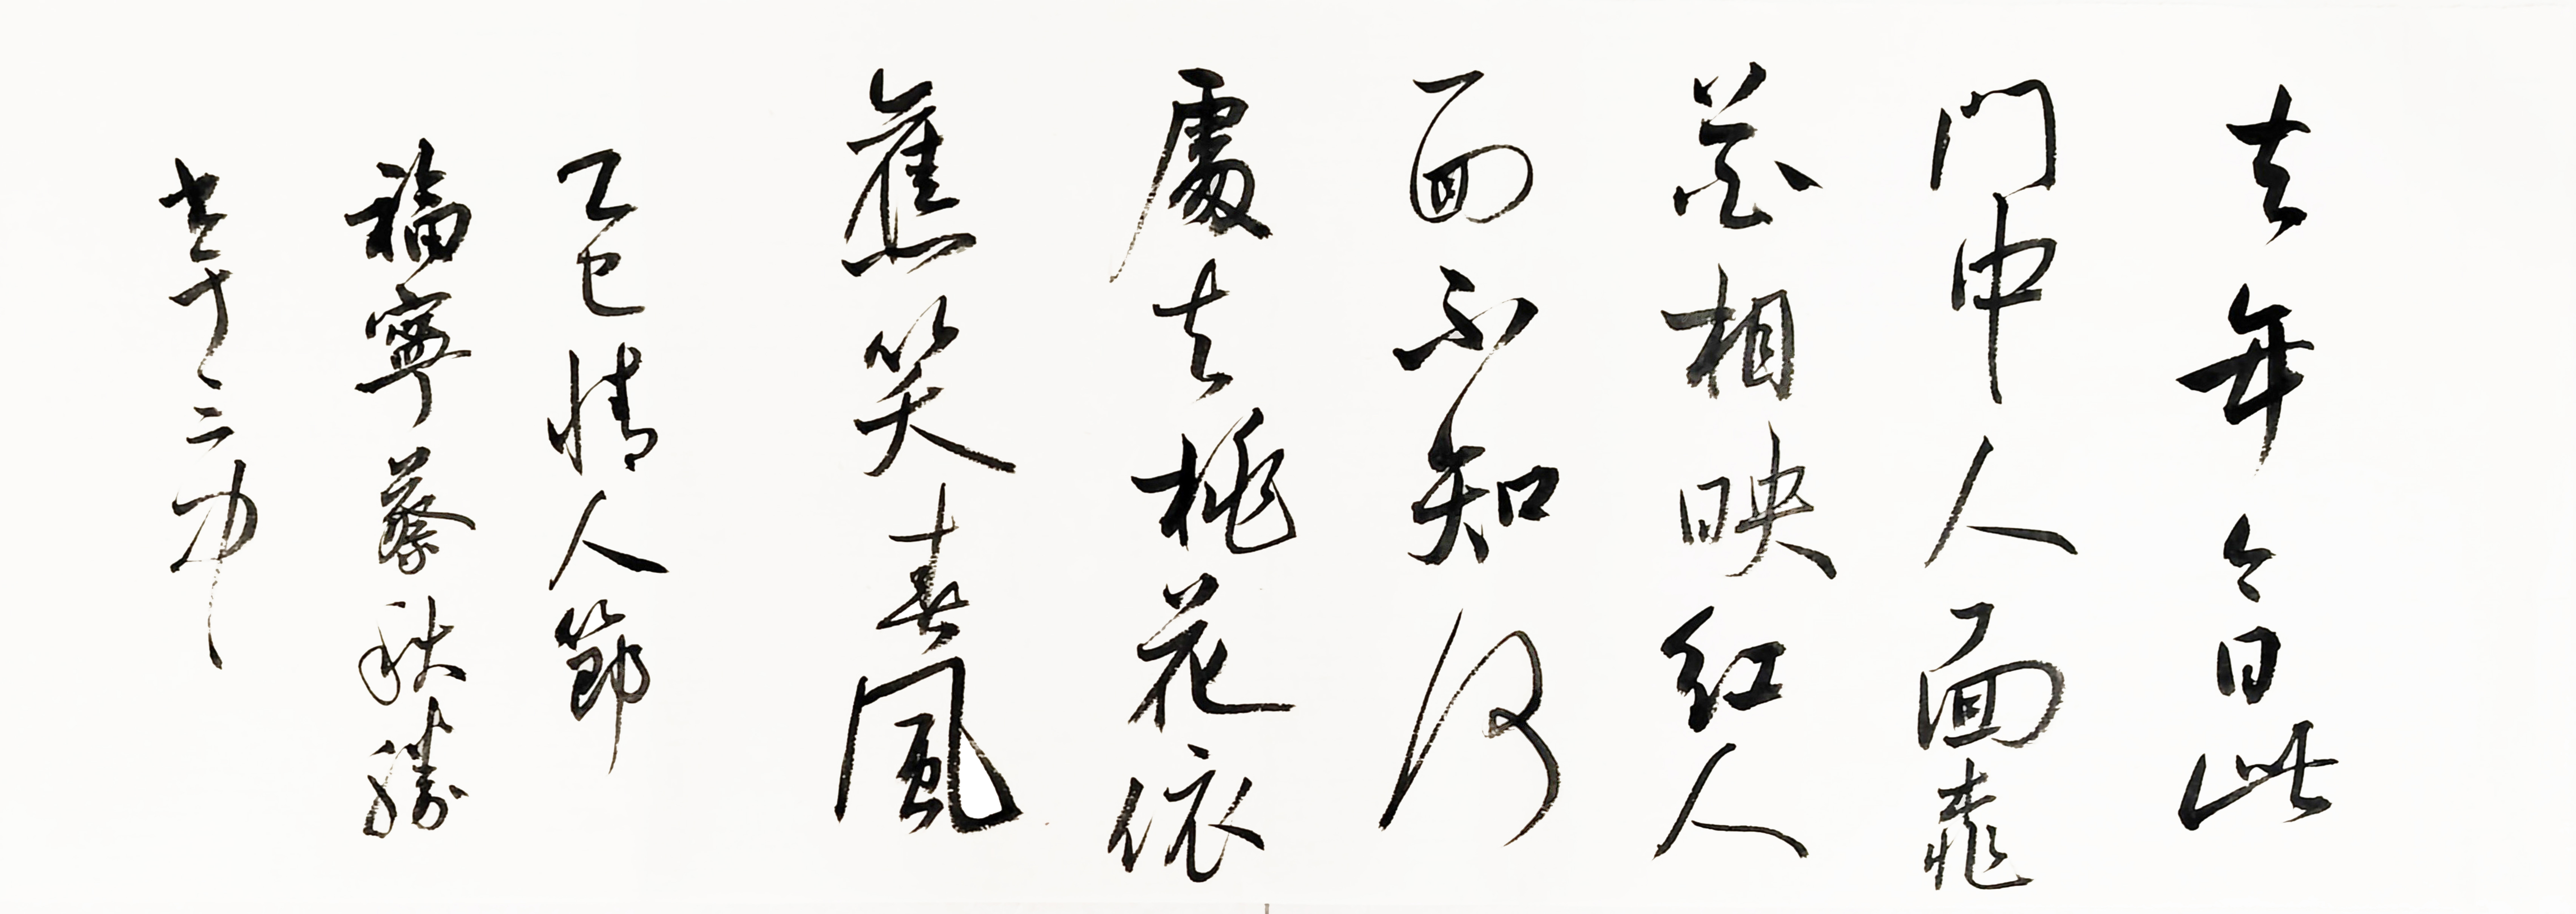 去年今日此
門中人面桃
花相映红人
面不知何
處去桃花依
舊笑春風
乙巳情人節
福寧蔡秋勝
書于二中